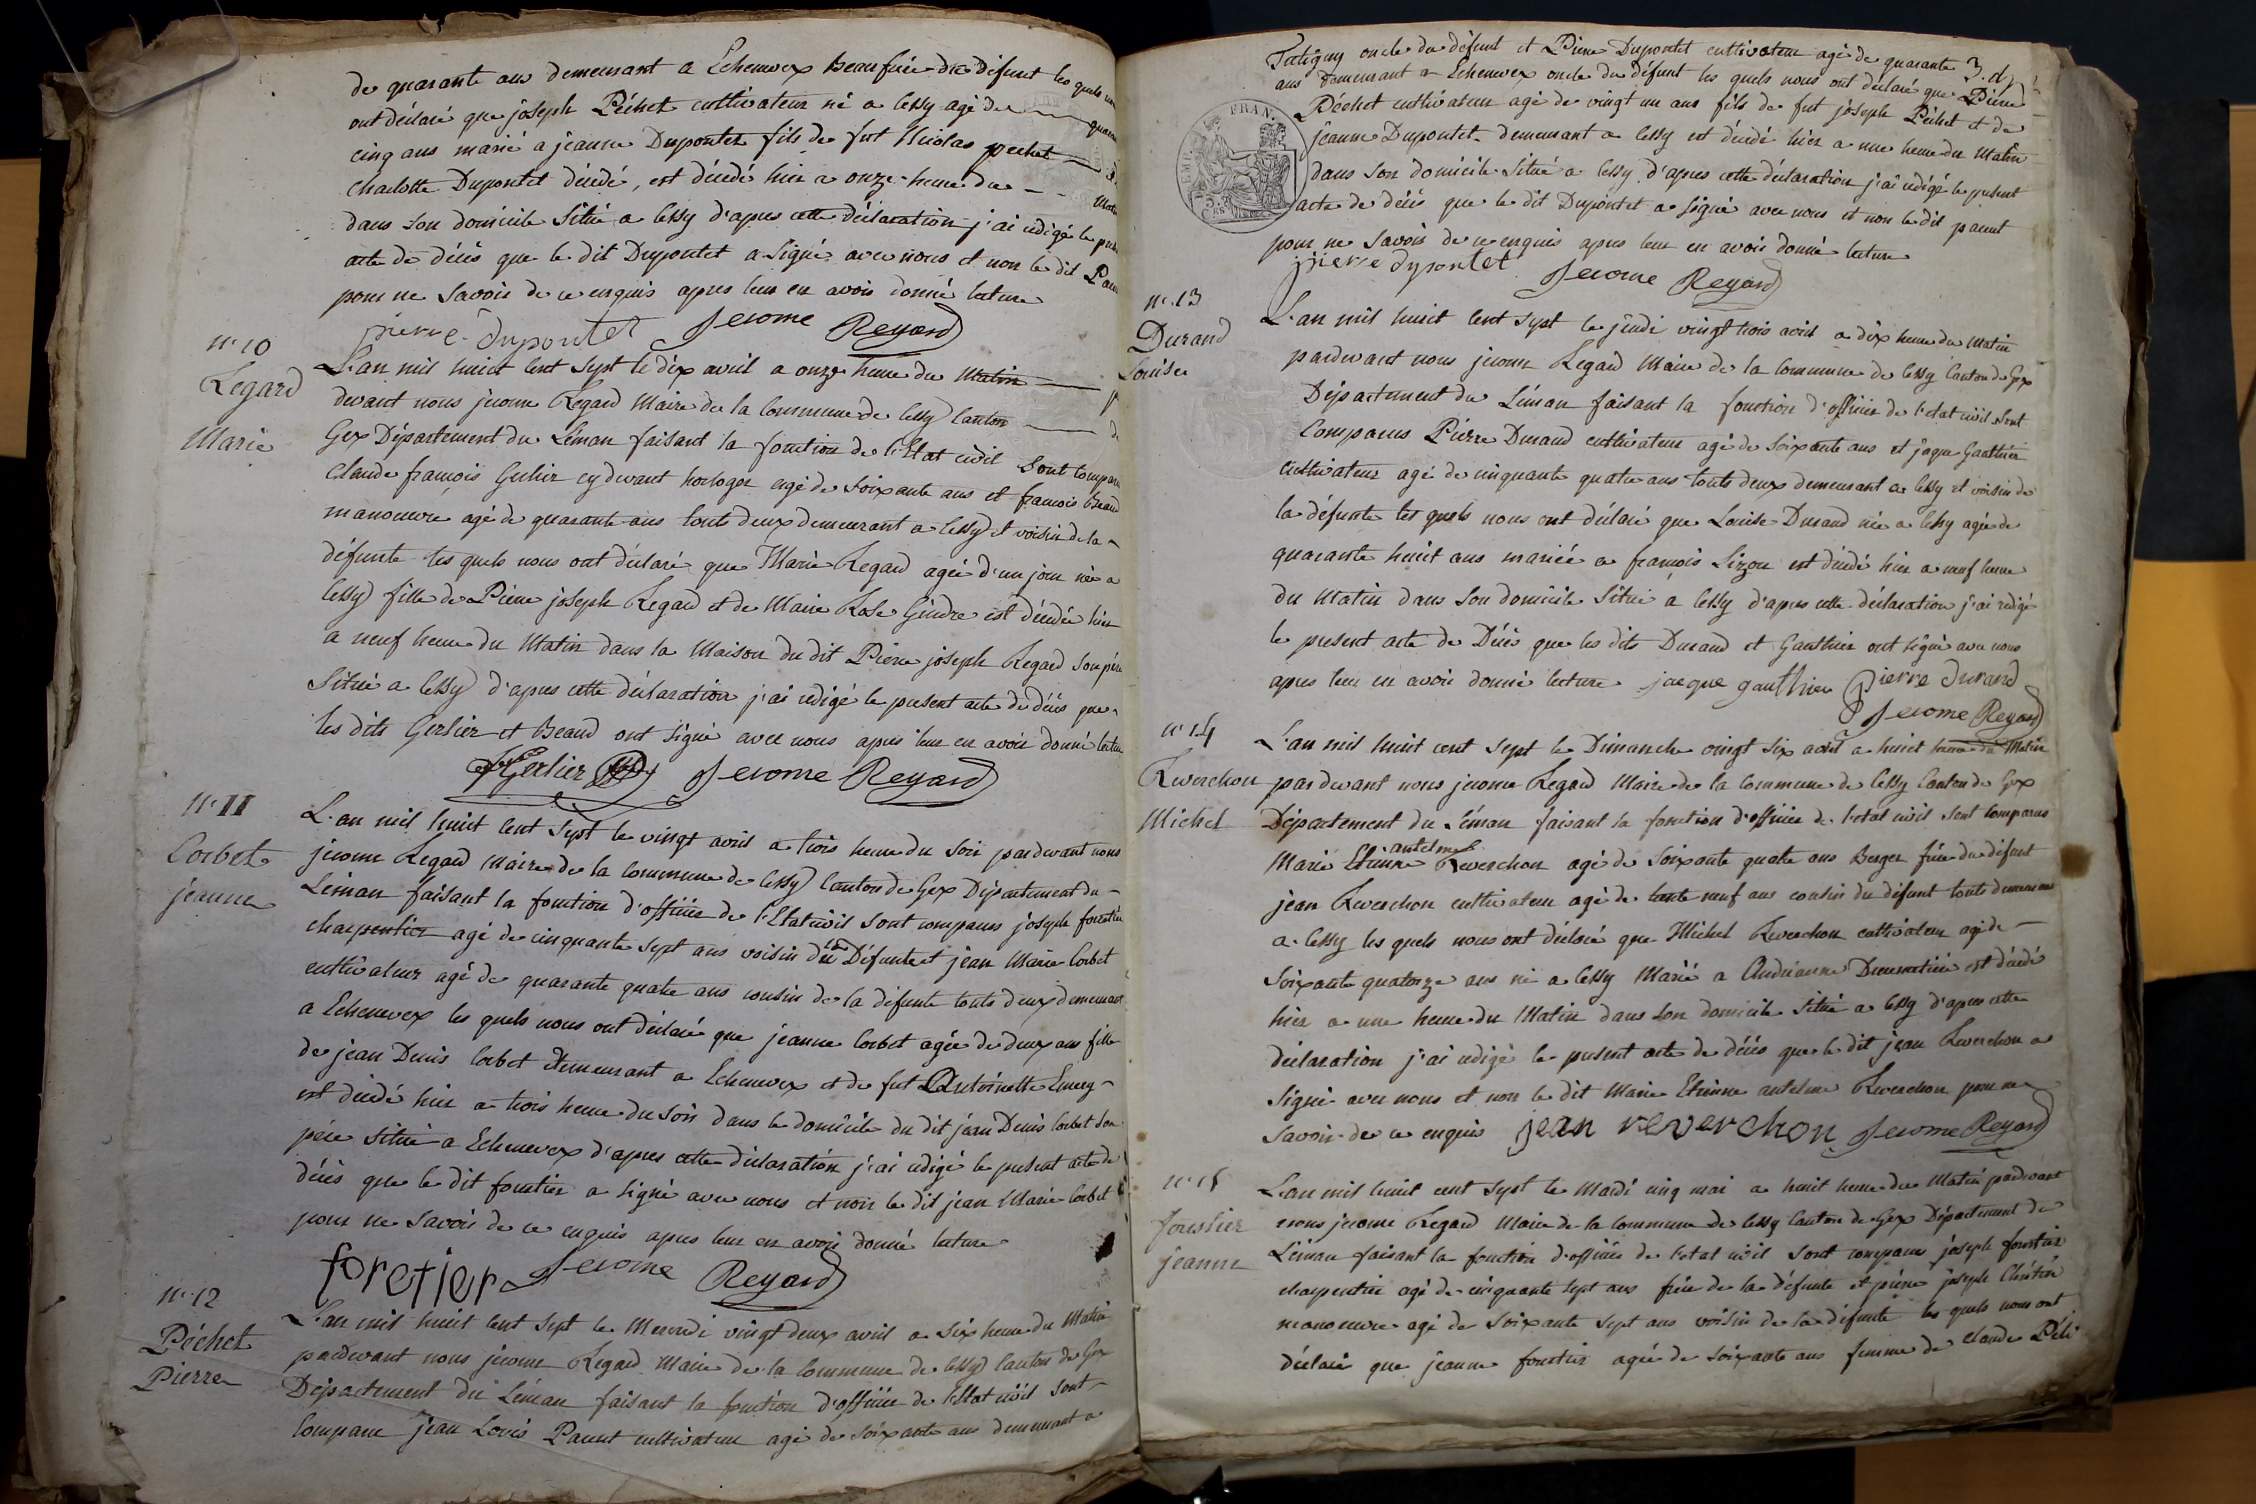 de quarante ans demeurant a Echenevex Beaufrère du défunt les quels
ont déclaré que joseph Péchet cultivateur né a Cessy agé de
cinq ans marié a jeanne Dupontet fils de fut Nicolas pechet
charlotte Dupontet décédé, est décédé hier a onze heure du
dans son domicile situé a Cessy d'apres cette déclaration j'ai redigé le
acte de décés que le dit Dupontet a signé avec nous et non le dit
pour ne savoir de ce enquis apres leur en avoir donné lecture
pierre dupontet Jerome Regard
n° 10
Regard
Marie
L'an mil huit Cent Sept le dix avril a onze heure du Matin
devant nous jerome Regard Maire de la Commune de Cessy Canton
Gex Département du Léman faisant la fonction de l'Etat civil Sont
Claude françois Gerlier cydevant horloger agé de soixante ans et françois Beaud
manoeuvre agé de quarante ans touts deux demeurant a Cessy et voisin de la
défunte les quels nous ont déclaré que Marie Regard agée d'un jour née a
Cessy fille de Pierre joseph Regard et de Marie Rose Gindre est décédée hier
a neuf heure du Matin dans la Maison du dit Pierre joseph Regard son père
Situé a Cessy d'apres cette déclaration j'ai redigé le present acte de décés que
les dits Gerlier et Beaud ont signé avec nous apres leur en avoir donné lecture
Gerlier Jerome Regard
n° 11
Corbet
jeanne
L'an mil huit Cent Sept le vingt avril a trois heure du soir pardevant nous
jerome Regard Maire de la Commune de Cessy Canton de Gex Département du
Léman faisant la fonction d'officier de l'Etat civil sont comparus joseph forestier
charpentier agé de cinquante sept ans voisin du Défunte et jean Marie Corbet
cultivateur agé de quarante quatre ans cousin de la défunte touts deux demeurant
a Echenevex les quels nous ont déclaré que jeanne Corbet agée de deux ans fille
de jean Denis Corbet demeurant a Echenevex et de fut Antoinette Emery
est décédé hier a trois heure du soir dans le domicile du dit jean Denis Corbet son
père situé a Echenevex d'apres cette déclaration j'ai redigé le present acte de
décés que le dit forestier a signé avec nous et non le dit jean Marie Corbet
pour ne savoir de ce enquis apres leur en avoir donné lecture
foretier Jerome Regard
n° 12
Péchet
Pierre
L'an mil huit Cent Sept le Mercredi vingt deux avril a six heure du Matin
pardevant nous jerome Regard Maire de la Commune de Cessy Canton de Gex
Département du Léman faisant la fonction d'officier de l'Etat civil sont
Comparu jean Louis Pacent cultivateur agé de soixante ans demeurant a
oncle du défunt et Pierre Dupontet cultivateur agé de quarante
ans demeurant a Echenevex oncle du défunt les quels nous ont déclaré que Pierre
Péchet cultivateur agé de vingt un ans fils de fut joseph Péchet et de
jeanne Dupontet demeurant a Cessy est décédé hier a une heure du Matin
dans son domicile situé a Cessy d'apres cette déclaration j'ai redigé le present
acte de décés que le dit Dupontet a signé avec nous et non le dit pacent
pour ne savoir de ce enquis apres leur en avoir donné lecture
pierre dupontet Jerome Regard
n° 13
Durand
Louise
L'an mil huit Cent Sept le jeudi vingt trois avril a dix heure du Matin
pardevant nous jerome Regard Maire de la Commune de Cessy Canton de Gex
Département du Léman faisant la fonction d'officier de l'etat civil sont
Comparus Pierre Durand cultivateur agé de soixante ans et jaque Gauthier
cultivateur agé de cinquante quatre ans touts deux demeurant a Cessy et voisin de
la défunte les quels nous ont déclaré que Louise Durand née a Cessy agée de
quarante huit ans mariée a françois Lizon est décédé hier a neuf heure
du Matin dans son domicile situé a Cessy d'apres cette déclaration j'ai redigé
le present acte de Décés que les dits Durand et Gauthier ont signé avec nous
apres leur en avoir donné lecture jacque gauthier Pierre durand
Jerome Regard
n° 14
Rverchon
Michel
L'an mil huit cent Sept le Dimanche vingt six avril a huict heure du Matin
pardevant nous jerome Regard Maire de la Commune de Cessy Canton de Gex
Département du Léman faisant la fonction d'officier de l'etat civil sont comparus
Marie Etienne antelme Rverchon agé de soixante quatre ans Berger frère du défunt
jean Rverchon cultivateur agé de trente neuf ans cousin du défunt touts demeurant
a Cessy les quels nous ont déclaré que Michel Rverchon cultivateur agé de
soixante quatorze ans né a Cessy Marié a Andrianne est décédé
hier a une heure du Matin dans son domicile situé a Cessy d'apres cette
déclaration j'ai redigé le present acte de décés que le dit jean Rverchon a
signé avec nous et non le dit Marie Etienne antelme Rverchon pour ne
savoir de ce enquis jean reverchon Jerome Regard
n° 15
forestier
jeanne
L'an mil huit cent Sept le Mardi cinq mai a huit heure du Matin pardevant
nous jerome Regard Maire de la Commune de Cessy Canton de Gex Département du
Léman faisant la fonction d'officier de l'etat civil sont comparus joseph forestier
charpentier agé de cinquante sept ans frère de la défunte et pierre joseph Chrétin
manoeuvre agé de soixante sept ans voisin de la défunte les quels nous ont
déclaré que jeanne forestier agée de soixante ans femme de Claude